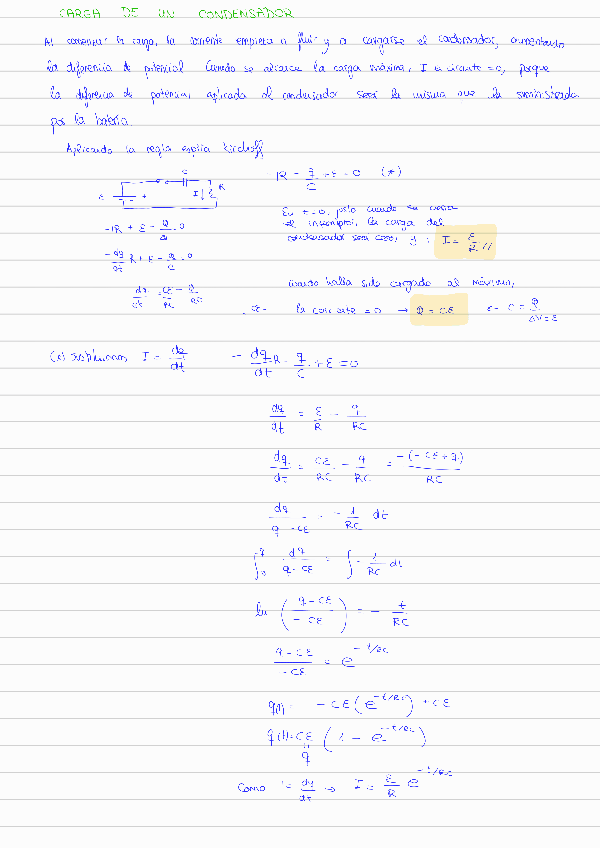 CARGA DE UN CONDENSADOR
Al comenzar la carga, la corriente empieza a fluir y a cargarse el condensador, aumentando
la diferencia de potencial Cuando se alcance la carga máxima, I circuito = 0, porque
la diferencia de potencial aplicada al condensador será la misma que la suministrada
por la batería.
Aplicando la regla Kirchoff
C
ε - + I R
- IR - q/C + ε = 0 (*)
En t = 0, justo cuando se cierra
el interruptor, la carga del
condensador será cero, y : I = ε/R //
- IR + ε - q/C = 0
- dq/dt R + ε - q/C = 0
dq/dt = Cε/RC - q/RC
cuando halla sido cargado al máximo,
la corriente = 0 → Q = Cε C = Q/ΔV = ε
(*) sustituimos I = dq/dt - dq/dt R - q/C + ε = 0
dq/dt = ε/R - q/RC
dq/dt = Cε/RC - q/RC = -(-Cε + q)/RC
dq/q - Cε = - 1/RC dt
∫₀^q dq/q - Cε = ∫ - 1/RC dt
ln (q - Cε/- Cε) = - t/RC
q - Cε/- Cε = e^(-t/RC)
q(t) = - Cε (e^(-t/RC)) + Cε
q(t) = Cε (1 - e^(-t/RC))
Como I = dq/dt → I = ε/R e^(-t/RC)